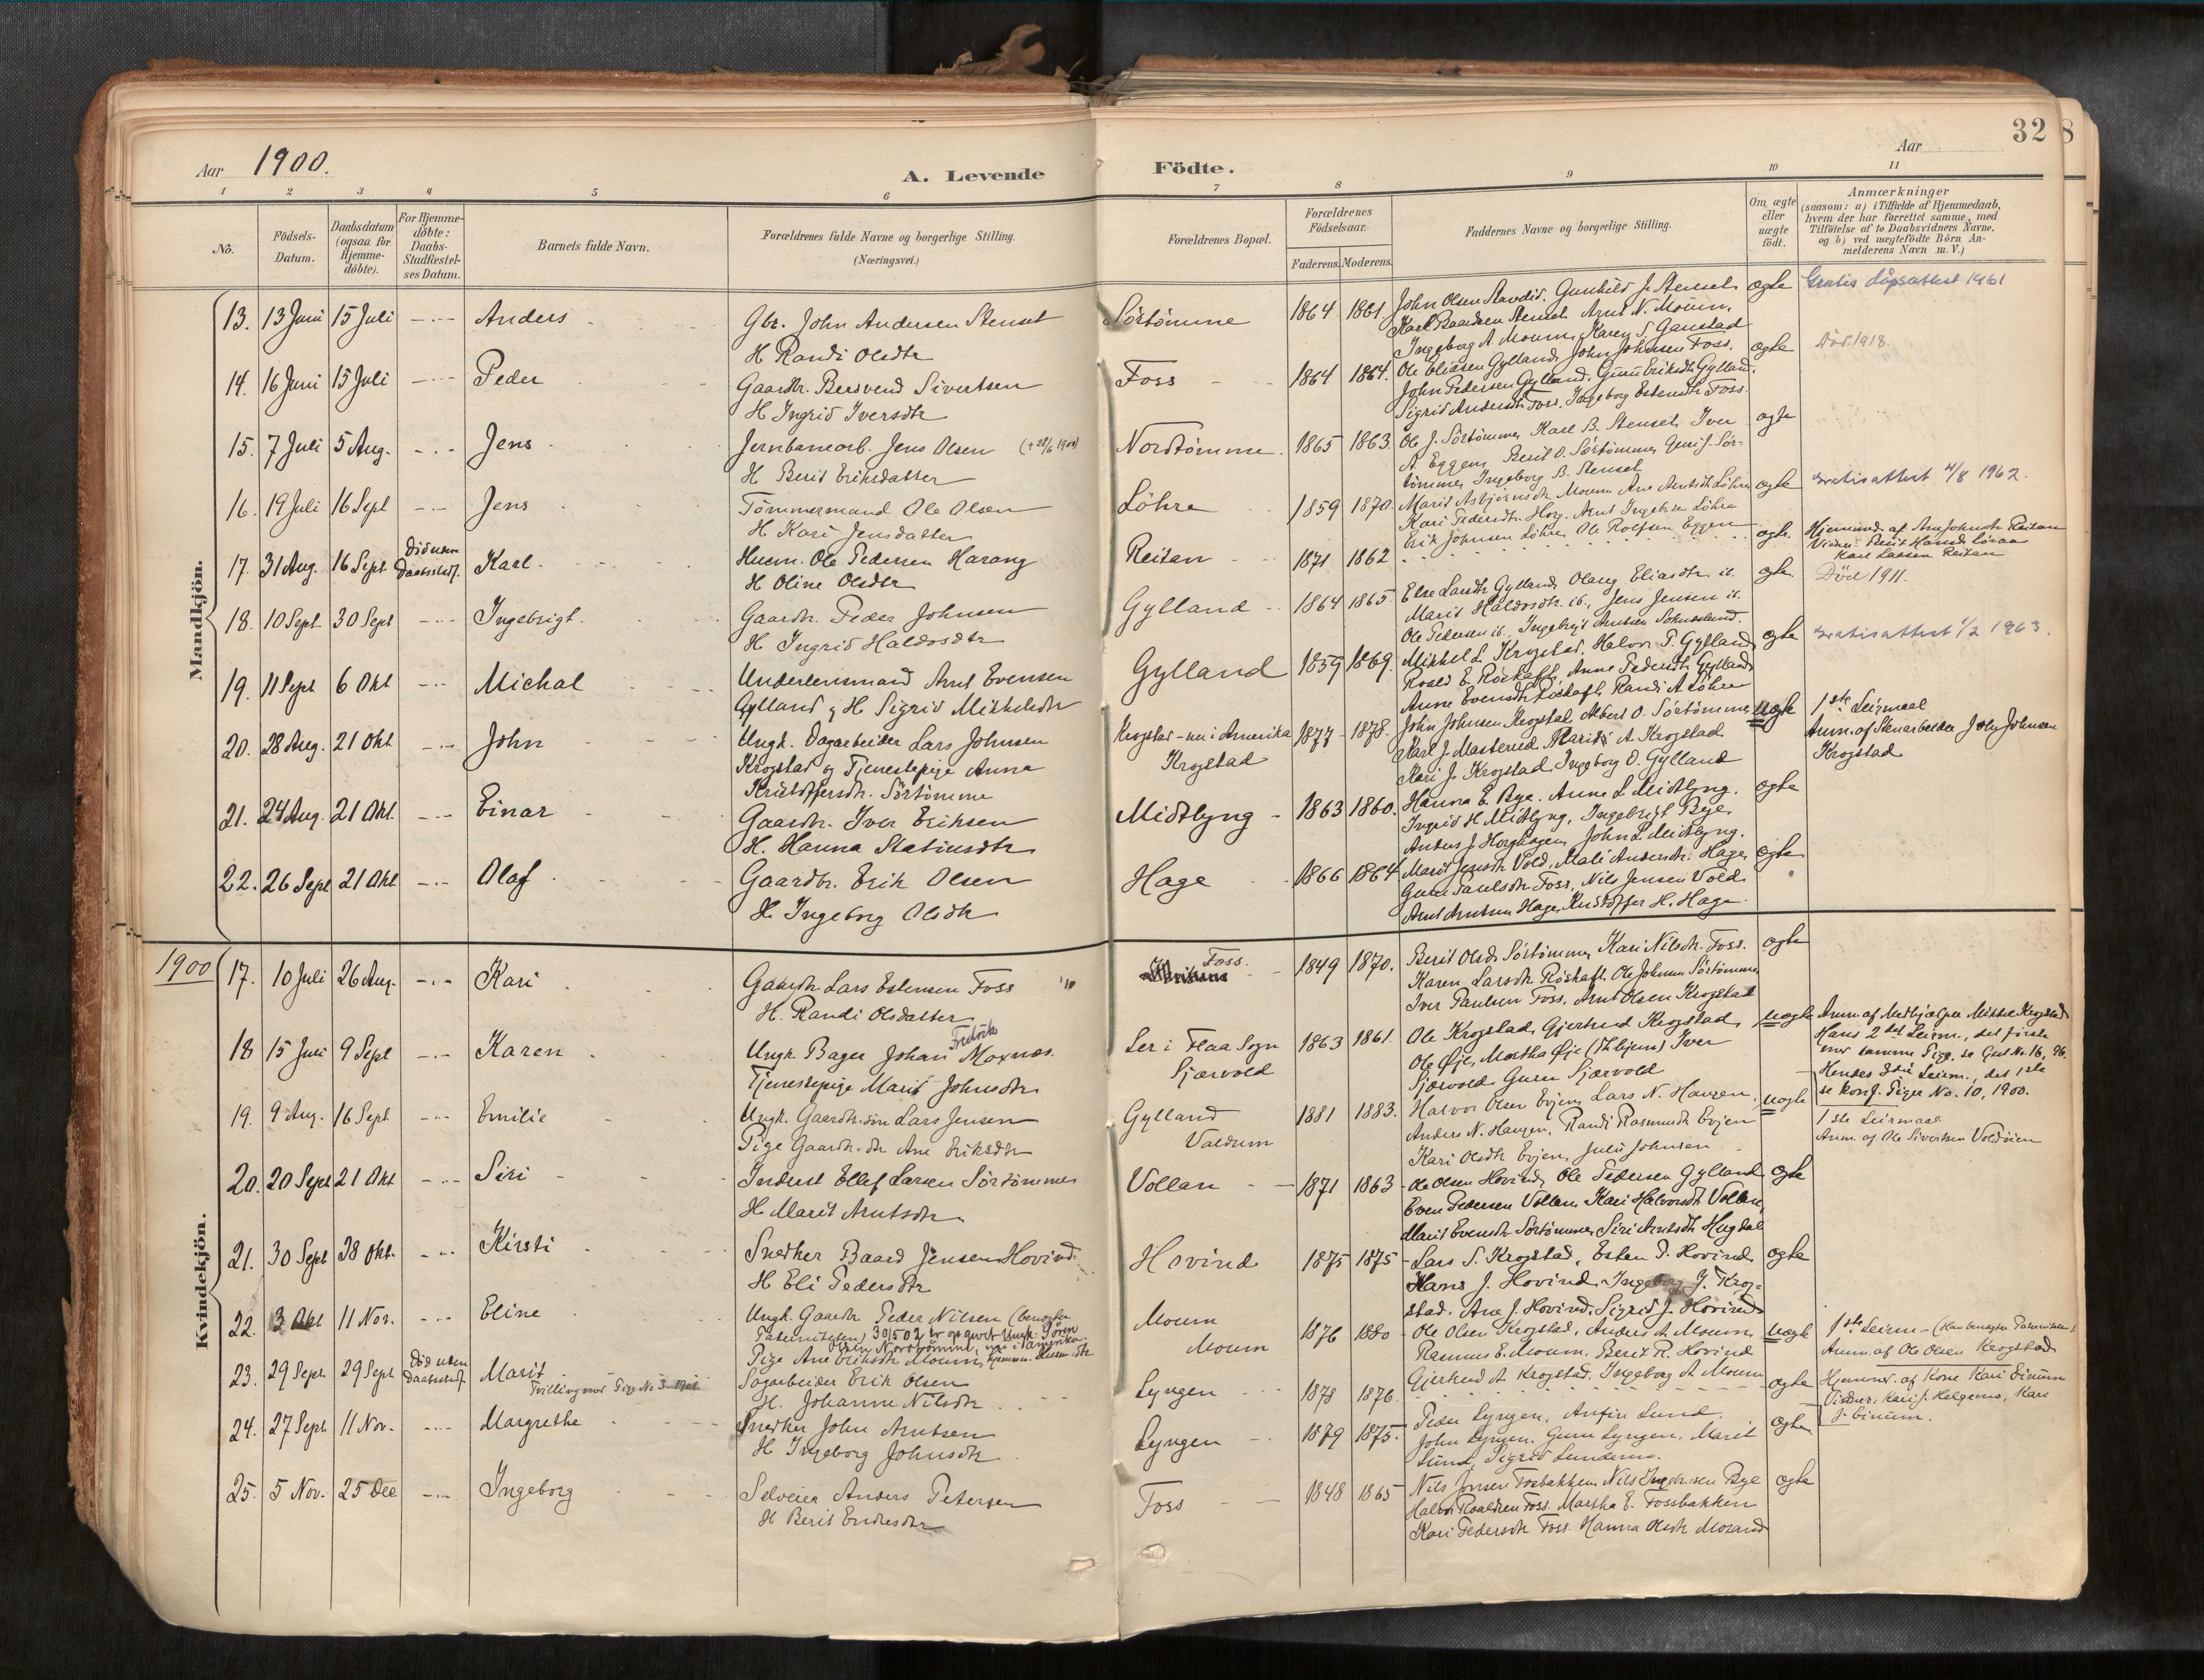 32
8
Aar 1900.
A. Levende
Födte.
Aar
1 2 3 4 5 6 7 8 9 10 11
No.
Födsels-Datum.
Daabsdatum (ogsaa for Hjemme-döbte).
For Hjemme-döbte: Daabs-Stadfæstel-ses Datum.
Barnets fulde Navn.
Forældrenes fulde Navne og borgerlige Stilling.
(Næringsvei.)
Forældrenes Bopæl.
Forældrenes Födselsaar.
Faderens. Moderens.
Faddernes Navne og borgerlige Stilling.
Om ægte eller uægte födt.
Anmærkninger
(saasom: a) i Tilfælde af Hjemmedaab, hvem der har forrettet samme, med Tilföielse af to Daabsvidners Navne. og b) ved uægtefödte Börn An-melderens Navn m. V.)
Mandkjön.
13. 13 Juni 15 Juli Anders Gbr. John Andersen Stenset
H Randi Olsdtr
Sörtömme 1864 1861 John Olsen Gunhild J. Stenset
Karl Baardsen Stenset Arnt N. Moum,
Ingeborg A Moum, Karen S. Ganstad
ægte Gratis dåpsattest 1961
14. 16 Juni 15 Juli Peder Gaardbr. Bersvend Sivertsen
H Ingrid Iversdtr
Foss 1864 1864. Ole Eliasen Gylland, John Johnsen Foss.
John Pedersen Gylland. Guru Eriksdtr Gylland.
Sigrid Andersdtr Foss, Ingeborg Estensdtr Foss
ægte Död 1918.
15. 7 Juli 5 Aug. Jens Jernbanearb. Jens Olsen (+28/6 1900)
H Berit Eriksdatter
Nordtömme 1865 1863. Ole J. Sörtömme, Karl B. Stenset, Iver
A. Eggen, Berit O. Sörtömme, Guri J. Sör-
tömme, Ingeborg B. Stenset
ægte
16. 19 Juli 16 Sept Jens Tömmermand Ole Olsen
H. Kari Jensdatter
Löhre 1859 1870. Marit Asbjörnsdtr. Moum Ane Arntsdtr Löhre
Kari Pedersdtr. Horg. Arnt Ingebr.sen Löhre
Erik Johnsen Löhre, Ole Rolfsen Eggen
ægte Gratisattest 4/8 1962.
17. 31 Aug. 16 Sept. Död uden Daabsstadf. Karl. Husm. Ole Pedersen Harang
H Oline Olsdtr
Reitan 1871 1862
ægte. Hjemmed. af Ane Johnsdtr Reitan
Karl Larsen Reitan
18. 10 Sept. 30 Sept Ingebrigt. Gaardbr. Peder Johnsen
H Ingrid Haldosdtr
Gylland 1864 1865. Else Larsdtr Gylland, Olaug Eliasdtr ib.
Marit Haldosdtr. ib., Jens Jensen ib.
Ole Pedersen ib., Ingebrigt
ægte Död 1911.
19. 11 Sept 6 Okt Michal Underlensmand Arnt Evensen
Gylland og H Sigrid Mikkelsdtr
Gylland 1859 1869. Mikkel L. Krogstad. Halvor P. Gylland,
Roald E. Röskaft, Anne Pedersdtr Gylland
Anne Evensdtr Röskaft, Randi A Löhre
ægte Gratisattest 1/2 1963.
20. 28 Aug. 21 Okt John Ungk. Dagarbeider Lars Johnsen
Krogstad og Tjenestepige Anna
Kristoffersdtr. Sörtömme
Krogstad - nu i Amerika
Krogstad
1877 1878. John Johnsen Krogstad, Albert O. Sörtömme
Karl J. Masterud, Marit A. Krogstad
Kari J. Krogstad, Ingeborg O. Gylland
uægte 1ste Leirmaal
Anm. af Stenarbeider John Johnsen
Krogstad
21. 24 Aug. 21 Okt. Einar Gaardbr. Iver Eriksen
H. Hanna Statinsdtr
Midtlyng 1863 1860. Hanna E. Bye. Anne L. Midtlyng.
Ingrid H. Midtlyng, Ingebrigt Bye,
Anders J. Horghagen, John L. Midtlyng.
ægte
22. 26 Sept 21 Okt Olaf Gaardbr. Erik Olsen
H. Ingeborg Olsdtr
Hage 1866 1864 Marit Jensdtr Vold, Mali Andersdtr. Hage,
Guru Paulsdtr Foss, Nils Jensen Vold
Arnt Arntsen Hage, Kristoffer H. Hage.
ægte
Kvindekjön.
1900 17. 10 Juli 26 Aug. Kari Gaardbr Lars Estensen Foss
H. Randi Olsdatter
Foss. 1849 1870. Berit Olsd. Sörtömme, Kari Nilsdtr. Foss.
Karen Larsdtr Röskaft. Ole Johnsen Sörtömme
Iver Paulsen Foss. Arnt Olsen Krogstad
ægte
18 15 Juli 9 Sept Karen Ungk. Bager Johan Fredrik Moxnes.
Tjenestepige Marit Johnsdtr
Ler i Flaa Sogn
Sjærvold
1863 1861. Ole Krogstad, Gjertrud Krogstad,
Ole Øie, Martha Øie Iver
Sjærvold. Guru Sjærvold
uægte Anm. af Medhjælper Mikkel Krogstad
Hans 2det Leirm., det förste
mor samme Pige, se Gut No. 16, 96.
Hendes 3die Leirm., det 1ste
se konf. Piger No. 10, 1900.
19. 9 Aug. 16 Sept Emilie Ungk. Gaardbr.sön Lars Jensen
Pige Gaardbr. dtr Ane Eriksdtr
Gylland
Voldum
1881 1883. Halvor Olsen Evjen, Lars N. Haugen,
Anders N. Haugen. Randi Rasmusdtr Evjen
Kari Olsdtr Evjen, Juliu Johnsen
uægte 1ste Leirmaal
Anm. af Ole Sivertsen
20. 20 Sept 21 Okt Siri Inderst Ellef Larsen Sörtömme
H. Marit Arntsdtr
Vollan 1871 1863 Ole Olsen Hovind, Ole Pedersen Gylland
Even Pedersen Vollan, Kari Halvorsdtr Vollan,
Marit Evensdtr Sörtömme, Siri Arntsdtr Hugdal
ægte
21. 30 Sept 28 Okt. Kirsti Snedker Baard Jensen Hovind
H Eli Pedersdtr
Hovind 1875 1875 Lars S. Krogstad, Esten P. Hovind
Hans J. Hovind, Ingeborg J. Krog-
stad. Ane J. Hovind, Sigrid J. Hovind
ægte
22. 3 Okt 11 Nov. Eline Ungk. Gaardbr Peder Nilsen (benegter
Paterniteten) 30/5 02 er opgivet Ungk. Sören
Olsen Nordtömme, nu i Amerika
Pige Ane Eriksdtr Moum,
Moum
Moum
1876 1880 Ole Olsen Krogstad, Anders A Moum,
Rasmus E. Moum, Berit R. Hovind
Gjertrud A Krogstad. Ingeborg A Moum
uægte 1ste Leirm. - (Han benegter Paterniteten)
Anm. af Ole Olsen Krogstad
23. 29 Sept. 29 Sept Död uden Daabsstadf. Marit
Tvilling mor Pige No 3 1901
Sagarbeider Erik Olsen
H. Johanne Nilsdtr
Lyngen 1878 1876
ægte Hjemmed. af Kone Kari
Vidner: Kari J. Helgemo, Kari
24. 27 Sept 11 Nov. Margrethe Snedker John Arntsen
H Ingeborg Johnsdtr
Lyngen 1879 1875. Peder Lyngen, Anfin Lund
John Lyngen. Guru Lyngen, Marit
Lund, Sigrid
ægte
25. 5 Nov. 25 Dec Ingeborg Selveier Anders Petersen
H Berit Endresdtr
Foss 1848 1865 Nils Jonsen Fosbakken, Nils Ingebr.sen Bye
Halvor Roaldsen Foss. Martha E. Fossbakken
Kari Pedersdtr Foss. Hanna Olsdtr Mosand
ægte